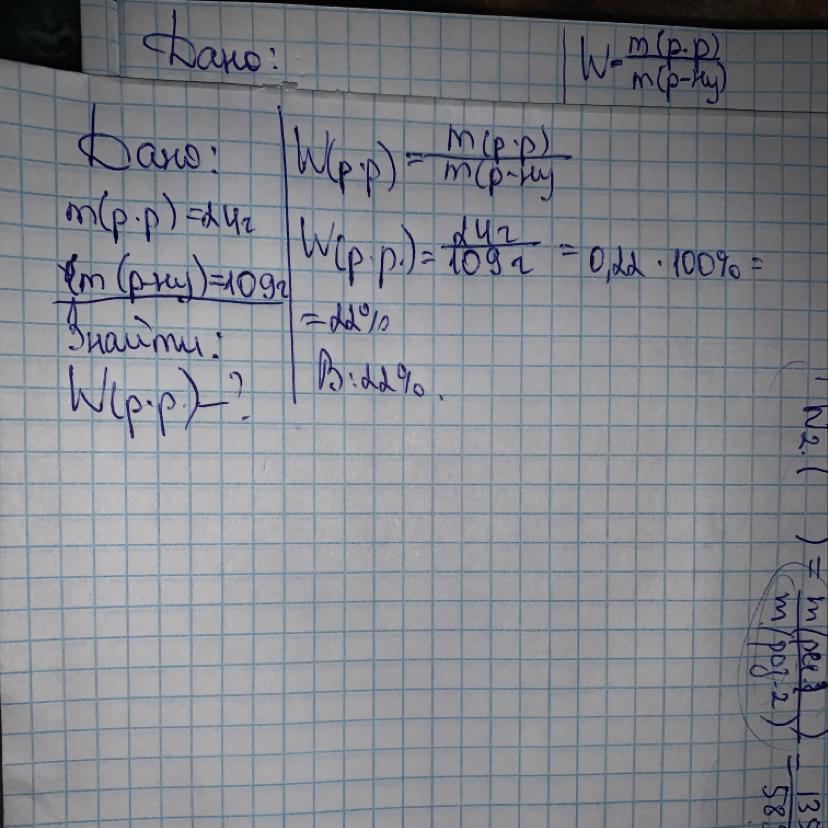 Дано:
W = m(р.р) / m(р-ну)
Дано:
m(р.р) = 24г
m(р-ну) = 109г
Знайти:
W(р.р.) – ?
W(р.р) = m(р.р) / m(р-ну
W(р.р.) = 24г / 109г = 0,22 · 100% =
= 22%
В: 22%.
N2. ( ) = m( ) / m( ) =